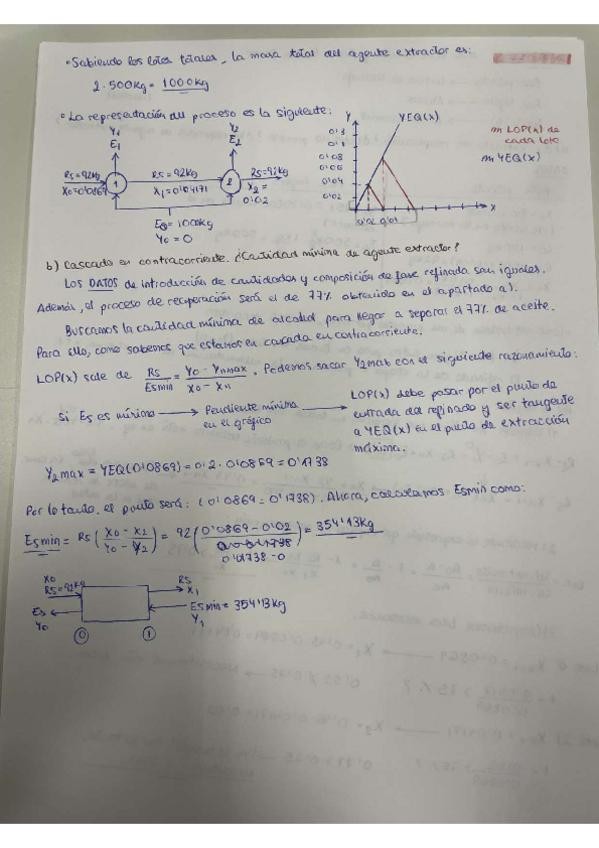 • Sabiendo los lotes totales, la masa total del agente extractor es:
2·500kg = 1000kg
• La representación del proceso es la siguiente:
Y1
E1
Y2
E2
Rs=92kg
X0=0'0869
1
Rs=92kg
X1=0'04171
2
Rs=92kg
X2=
0'02
E0=1000kg
Y0=0
Y
YEQ(x)
0'3
0'1
0'08
0'06
0'04
0'02
X
m LOP(x) de
cada lote
m YEQ(x)
b) Cascada en contracorriente. ¿Cantidad mínima de agente extractor?
Los DATOS de introducción de cantidades y composición de fase refinada son iguales.
Además, el proceso de recuperación será el de 77% obtenido en el apartado a).
Buscamos la cantidad mínima de alcohol para llegar a separar el 77% de aceite.
Para ello, como sabemos que estamos en cascada en contracorriente.
LOP(x) sale de Rs/Esmin = Y0-Ynmax/X0-Xn. Podemos sacar Y2max con el siguiente razonamiento:
si Es es mínimo → Pendiente mínima en el gráfico → LOP(x) debe pasar por el punto de
entrada del refinado y ser tangente
a YEQ(x) en el punto de extracción
máxima.
Y2max = YEQ(0'0869) = 0'2·0'0869 = 0'1738
Por lo tanto, el punto será: (0'0869 = 0'1738). Ahora, calculamos Esmin como:
Esmin = Rs(X0-X2/Y0-Y2) = 92(0'0869-0'02/0'01738-0) = 354'13kg
X0
Rs=92kg
Es
Y0
Rs
X1
Esmin = 354'13kg
Y1
0
1